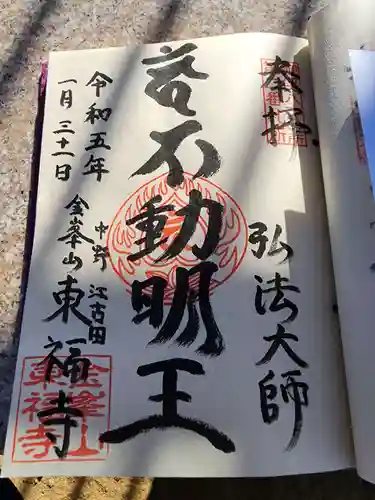 奉拝
弘法大師
不動明王
令和五年
一月三十一日
中野 江古田
金峯山
東福寺
金峰山
東福寺